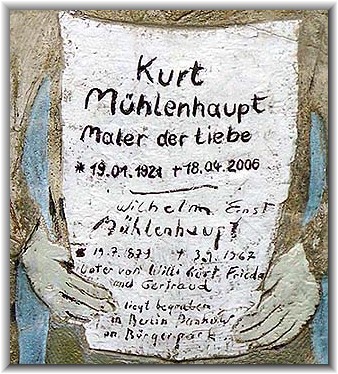 Kurt
Mühlenhaupt
Maler der Liebe
* 19.01.1921 + 18.04.2006
Wilhelm Ernst
Mühlenhaupt
Vater von Willi Kurt Frieda
und Gertraud
liegt begraben
in Berlin Pankow
am Bürgerpark